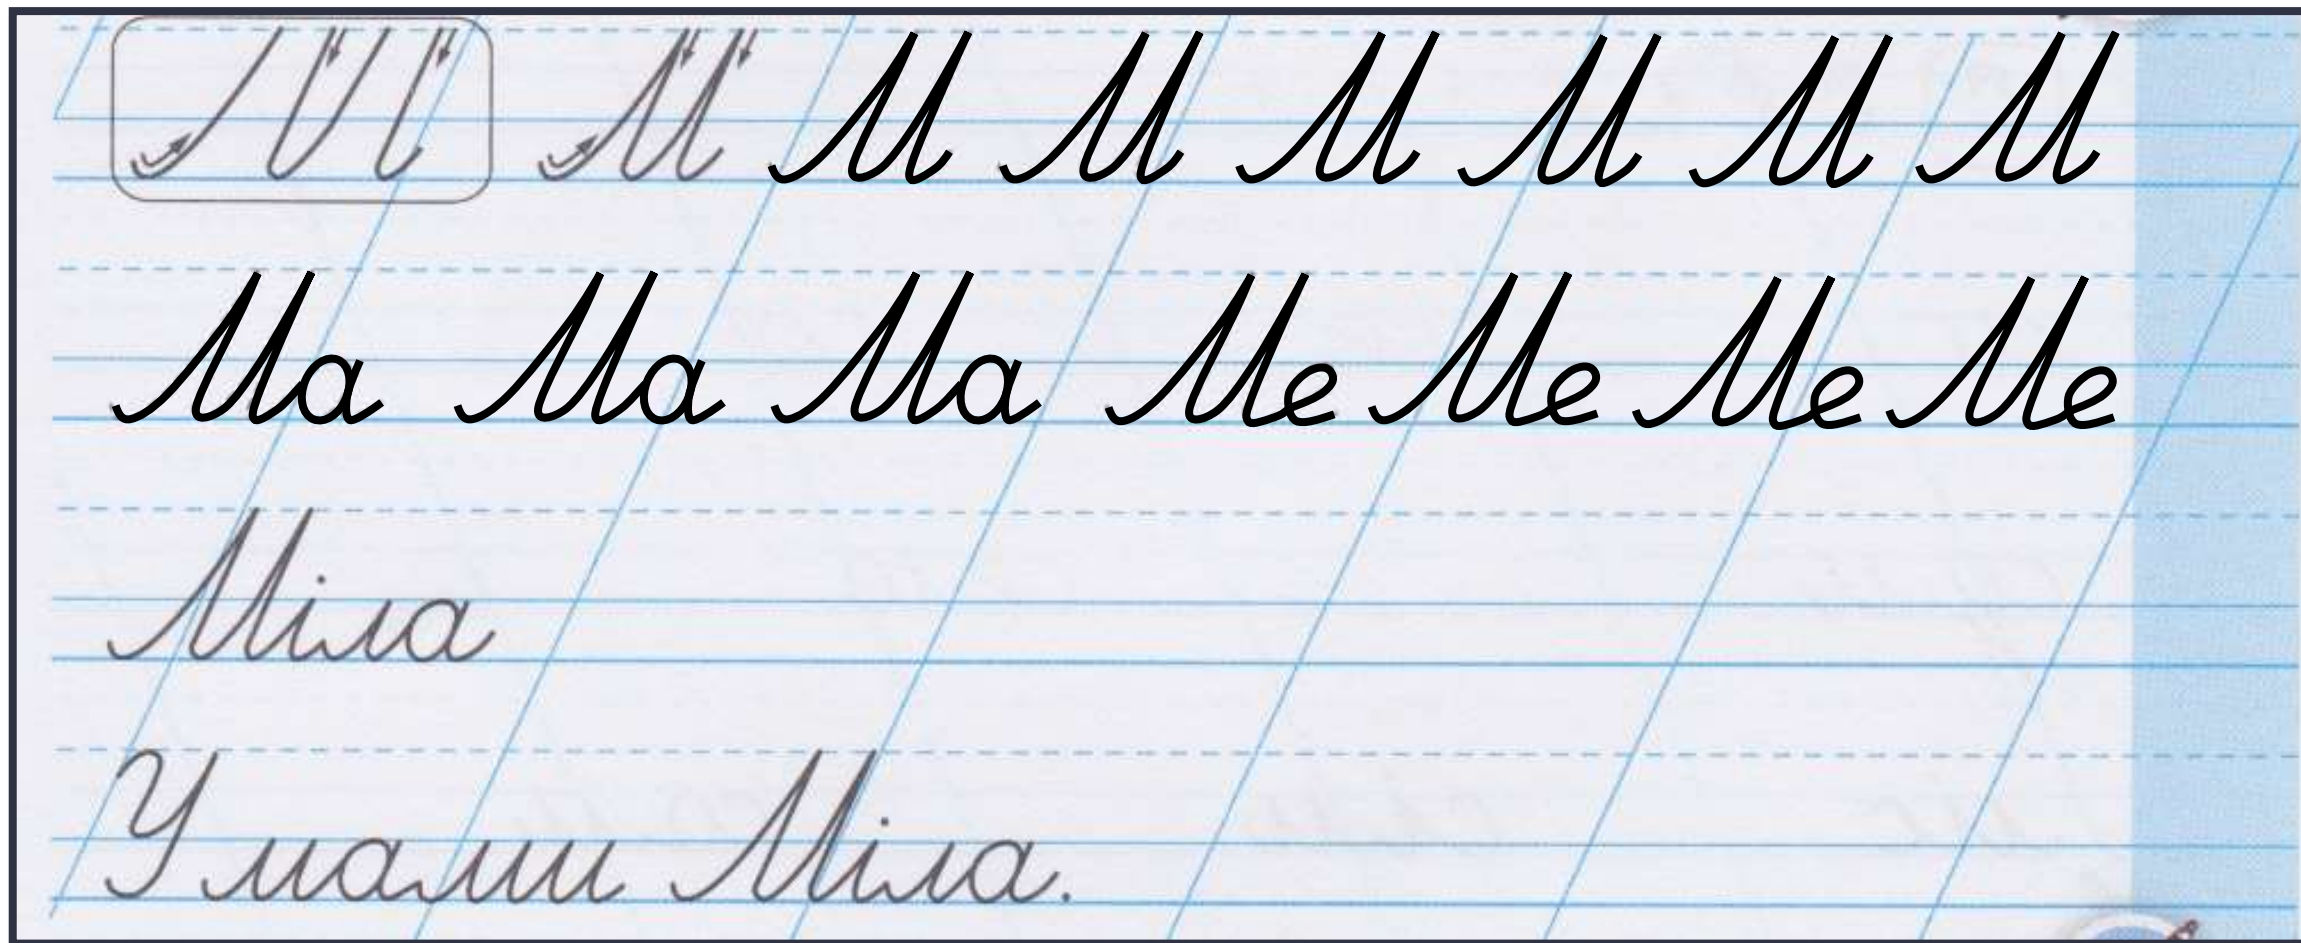 М М М М М М М М
Ма Ма Ма Ме Ме Ме Ме
Міла
У мами Міла.